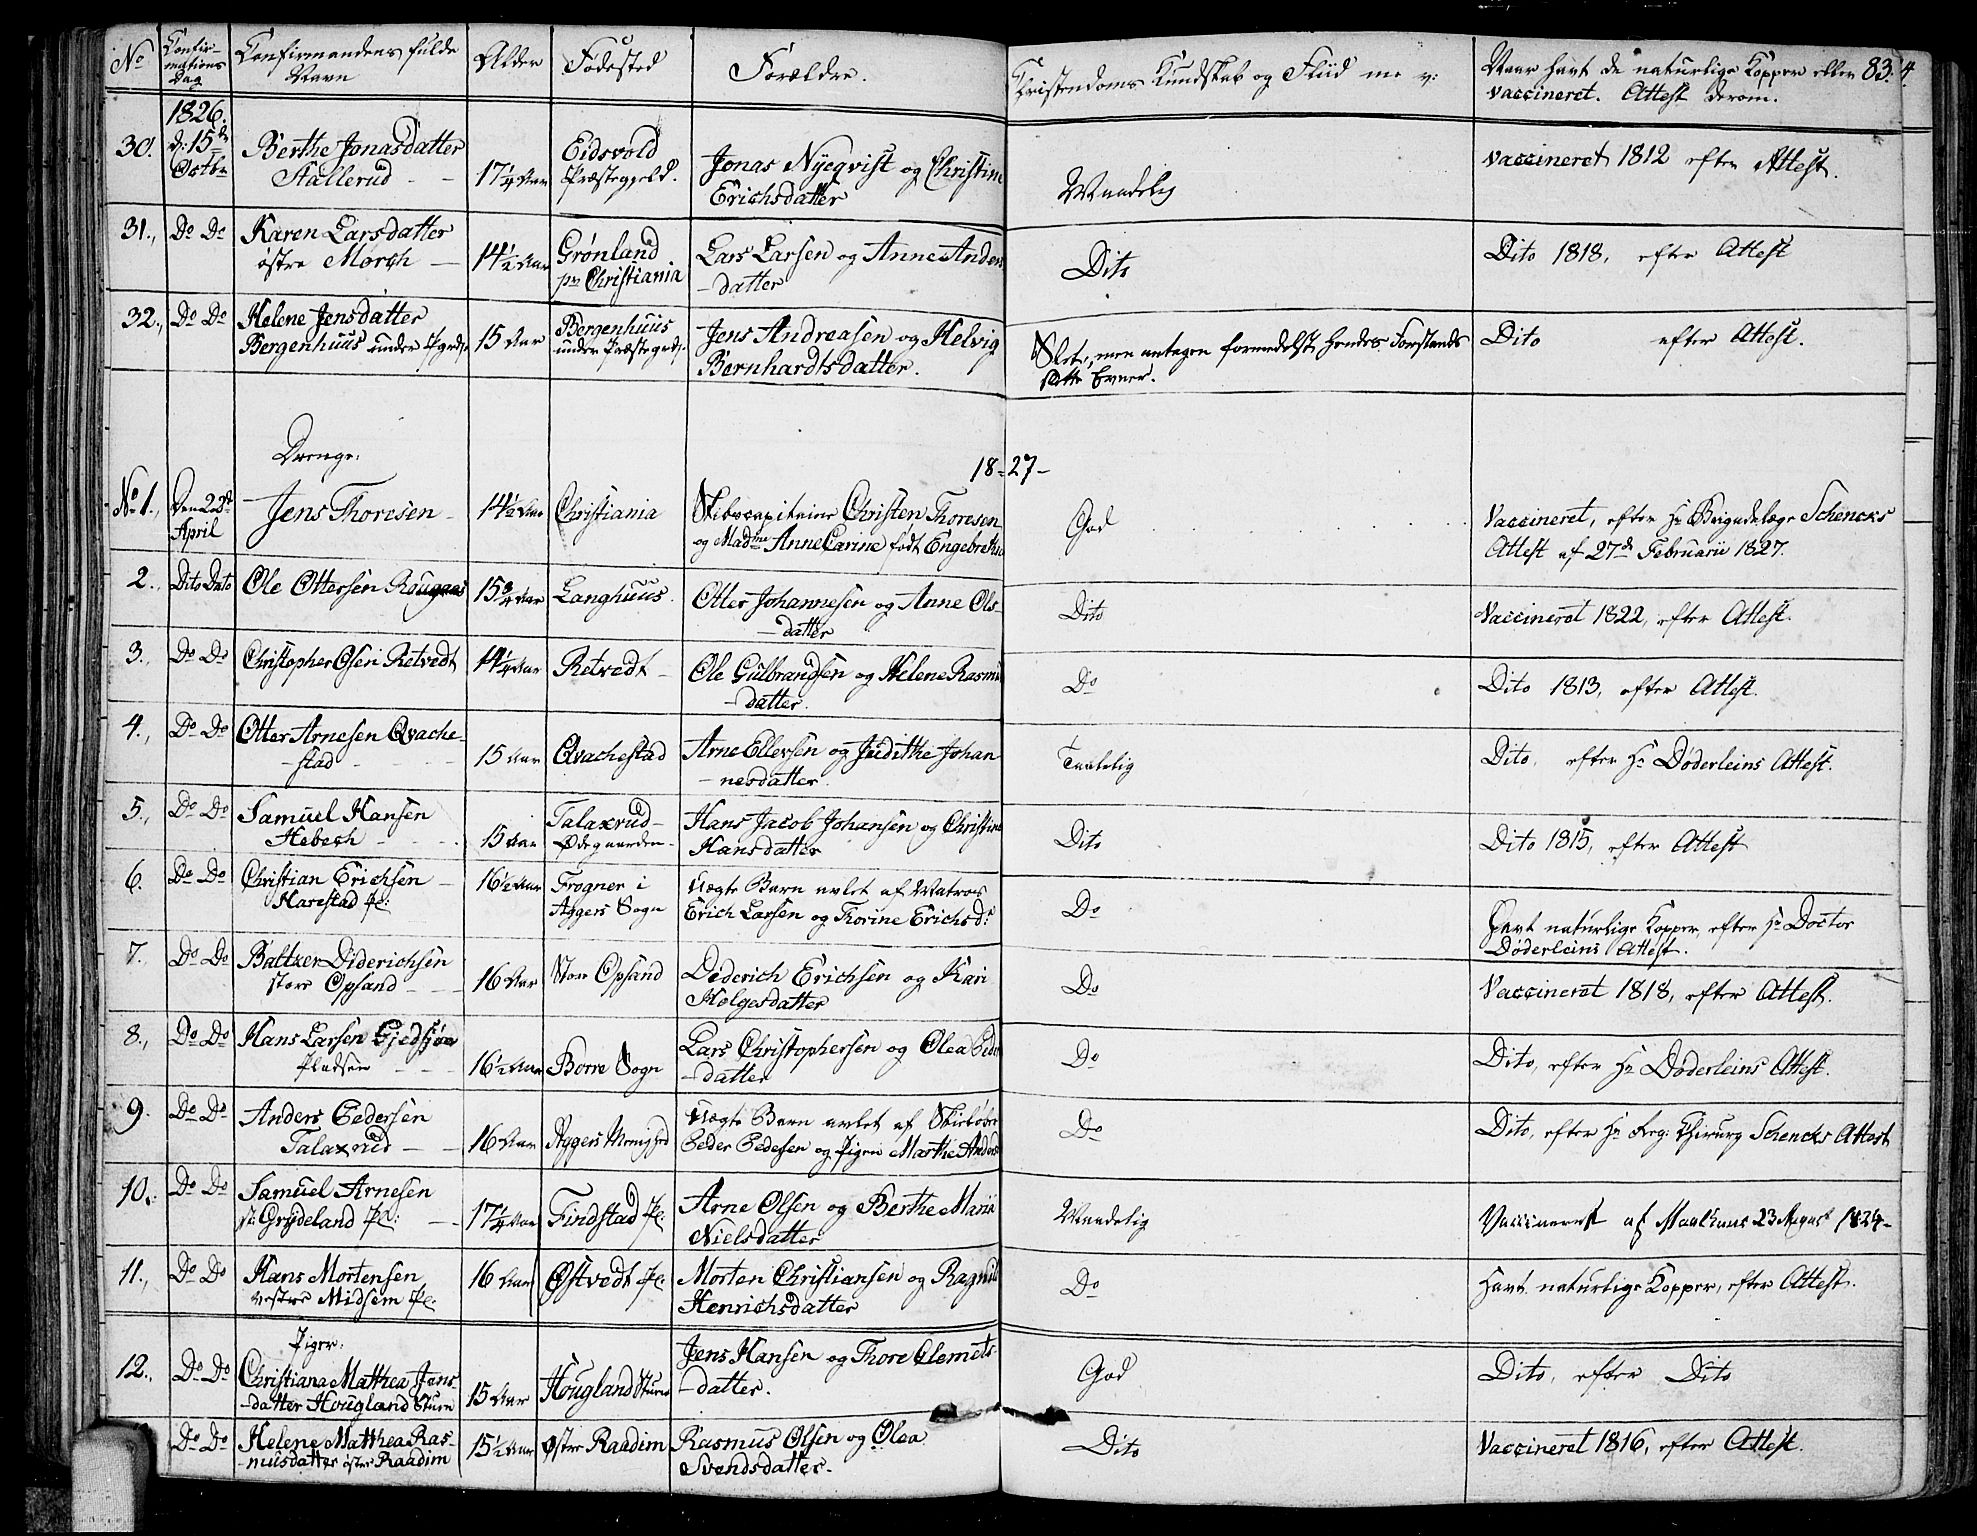 No
Confir-
mations
Dag
Confirmandens fulde
Navn
Alder
Fødested
Forældre.
Christendoms Kundskab og Fliid m. v:
Naar havt de naturlige Kopper eller 83.
vaccineret. Attest derom.
1826.
30. d: 15de Octbr Berthe Jonasdatter Stallerud 17¼ Aar Eidsvold Præstegjeld. Jonas Nyeqvist og Christine Erichsdatter Maadelig vaccineret 1812 efter Attest.
31., Do Do Karen Larsdatter østre Morch 14½ Aar Grønland pr Christiania Lars Larsen og Anne Anders-datter Dito Dito 1818, efter Attest
32., Do Do Helene Jensdatter Bergenhuus under 15 Aar Bergenhuus under Præstegrd: Jens Andreasen og Helvig Bernhardtsdatter. Slet, men antagen formedelst hendes Forstands Evner. Dito efter Attest.
Drenge:
18-27-
No 1., Den 22de April Jens Thoresen 14½ Aar Christiania Skibscapitaine Christen Thoresen og Madme Anne Carine født Engebretsen God Vaccineret, efter Hr Brigadelæge Schencks Attest af 27de Februarii 1827.
2., Dito Dato Ole Ottersen Rougaas 15¾ Aar Langhuus. Otter Johannesen og Anne Ols-datter Dito Vaccineret 1822, efter Attest.
3., Do Do Christopher Olsen Retvedt 14¼ Aar Retvedt Ole Gulbrandsen og Helene Rasmus-datter. Do Dito 1813, efter Attest.
4., Do Do Otter Arnesen Qvache-stad 15 Aar Qvachestad Arne Ellevsen og Judithe Johan-nesdatter Taalelig Dito, efter Hr Døderleins Attest.
5., Do Do Samuel Hansen Hebech 15 Aar Talaxrud Ødegaarden Hans Jacob Johansen og Christine Hansdatter Dito Dito 1815, efter Attest
6. Do Do Christian Erichsen Harestad Pl: 16½ Aar Frogner i Aggers Sogn Uægte Barn avlet af Matros Erich Larsen og Thorine Erichsdr Do Havt naturlige Kopper, efter Hr Doctor Døderleins Attest.
7. Do Do Baltzer Diderichsen store Opsand 16 Aar Store Opsand Diderich Erichsen og Kari Holgesdatter Do Vaccineret 1818, efter Attest.
8., Do Do Hans Larsen Gjedsjøe Pladsen 16½ Aar Borre Sogn Lars Christophersen og Olea Peders-datter Do Dito, efter Hr Døderleins Attest.
9. Do Do Anders Pedersen Talaxrud 16 Aar Aggers Menighed Uægte Barn avlet af Peder Pedersen og Pigen Marthe Anders Do Dito, efter Hr Reg: Chirurg Schencks Attest
10., Do Do Samuel Arnesen Grydeland Pl: 17¼ Aar Findstad Pl. Arne Olsen og Berthe Maria Nielsdatter Maadelig Vaccineret af Maalhaus 23 August 1824-
11., Do Do Hans Mortensen vestre Midsem Pl: 16 Aar Østvedt Pl. Morten Christiansen og Ragnild Henrichsdatter Do Havt naturlige Kopper, efter Attest.
Piger:
12., Do Do Christiana Mathea Jens-datter Hougland Stuen 15 Aar Hougland Stuen Jens Hansen og Thore Clemets-datter. God Dito, efter Dito
Do Do Helene Mathea Ras-musdatter østre Raadim 15½ Aar østre Raadim Rasmus Olsen og Olea Svendsdatter. Dito Vaccineret 1816, efter Attest.